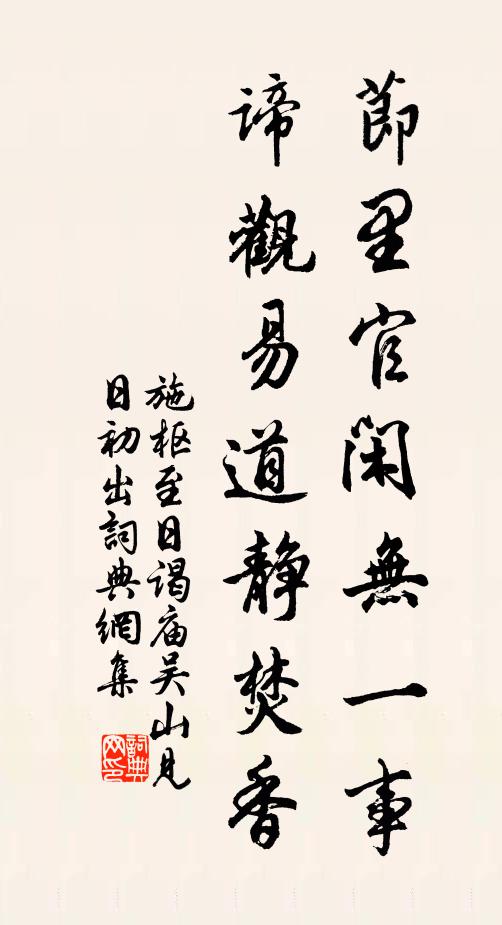 節里官閑無一事
諦觀易道靜焚香
施枢至日谒庙吴山見
日初出詞典網集
詞典網印